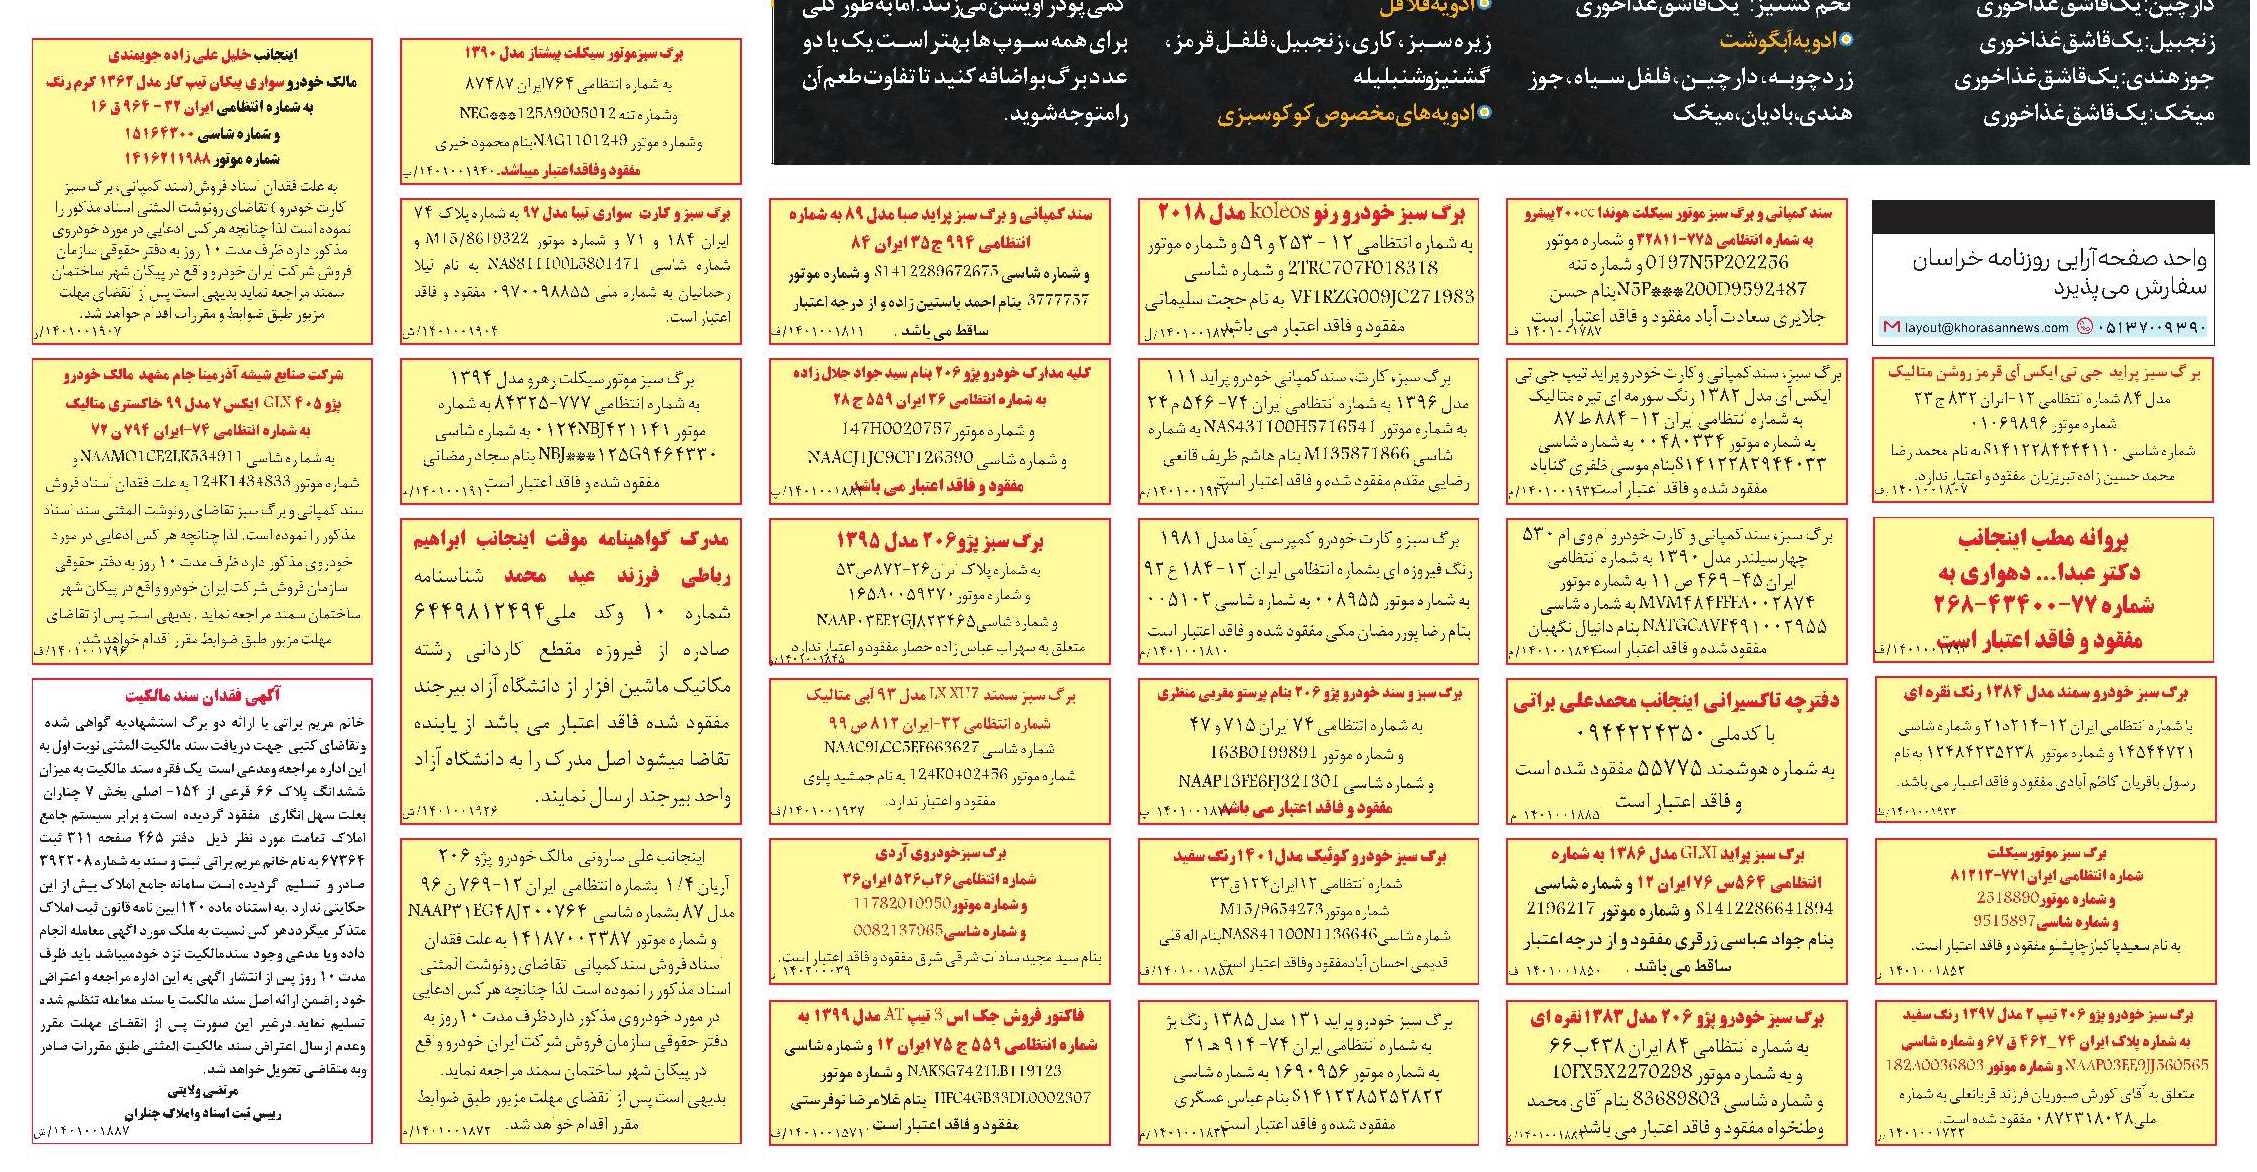 دارچین: یک قاشق غذاخوری
زنجبیل: یک قاشق غذاخوری
جوز هندی: یک قاشق غذاخوری
میخک: یک قاشق غذاخوری
تخم گشنیز: یک قاشق غذاخوری
ادویه آبگوشت
زردچوبه، دارچین، فلفل سیاه، جوز
هندی، بادیان، میخک
ادویه فلافل
زیره سبز، کاری، زنجبیل، فلفل قرمز،
گشنیز و شنبلیله
ادویه‌های مخصوص کوکوسبزی
کمی پودر آویشن می‌زنند. اما به طور کلی
برای همه سوپ‌ها بهتر است یک یا دو
عدد برگ بو اضافه کنید تا تفاوت طعم آن
را متوجه شوید.
واحد صفحه‌آرایی روزنامه خراسان
سفارش می‌پذیرد
layout@khorasannews.com ۰۵۱۳۷۰۰۹۳۹۰
برگ سبز پراید جی تی ایکس آی قرمز روشن متالیک
مدل ۸۴ شماره انتظامی ۱۲-ایران ۸۳۲ ج ۲۳
شماره موتور ۰۱۰۶۹۸۹۶
شماره شاسی S۱۴۱۲۲۸۴۴۴۴۱۱۰ به نام محمد رضا
محمد حسین زاده تبریزیان مفقود و اعتبار ندارد.
۱۴۰۱۰۰۱۸۰۷/ف
پروانه مطب اینجانب
دکتر عبدا... دهواری به
شماره ۷۷-۴۳۴۰۰-۲۶۸
مفقود و فاقد اعتبار است
برگ سبز خودرو سمند مدل ۱۳۸۴ رنگ نقره ای
با شماره انتظامی ایران ۱۲-۲۱۴د۲۱ و شماره شاسی
۱۴۵۴۴۷۲۱ و شماره موتور ۱۲۴۸۴۲۳۵۲۳۸ به نام
رسول باقریان کاظم آبادی مفقود و فاقد اعتبار می باشد.
۱۴۰۱۰۰۱۹۳۳/ط
برگ سبز موتورسیکلت
شماره انتظامی ایران۷۷۱-۸۱۲۱۳
و شماره موتور2518890
و شماره شاسی9515897
به نام سعید پاکباز چاپشلو مفقود و فاقد اعتبار است.
۱۴۰۱۰۰۱۸۵۲ ر
برگ سبز خودرو پژو ۲۰۶ تیپ ۲ مدل ۱۳۹۷ رنگ سفید
به شماره پلاک ایران ۷۴_۴۶۲ ق ۶۷ و شماره شاسی
NAAP03EE9JJ560565 و شماره موتور 182A0036803
متعلق به آقای کورش صبوریان فرزند قربانعلی به شماره
ملی۰۸۷۲۳۱۸۰۲۸ مفقود شده است.
۱۴۰۱۰۰۱۷۲۲/ر
سند کمپانی و برگ سبز موتور سیکلت هوندا ۲۰۰ccپیشرو
به شماره انتظامی ۷۷۵-۳۲۸۱۱ و شماره موتور
0197N5P202256 و شماره تنه
N5P***200D9592487بنام حسن
جلایری سعادت آباد مفقود و فاقد اعتبار است
۱۴۰۱۰۰۱۷۸۷ ف
برگ سبز، سند کمپانی و کارت خودرو پراید تیپ جی تی
ایکس آی مدل ۱۳۸۲ رنگ سورمه ای تیره متالیک
به شماره انتظامی ایران ۱۲- ۸۸۴ ط ۸۷
به شماره موتور ۰۰۴۸۰۳۳۴ به شماره شاسی
S۱۴۱۲۲۸۲۹۴۴۰۳۳بنام موسی ظفری گناباد
مفقود شده و فاقد اعتبار است
برگ سبز، سند کمپانی و کارت خودرو ام وی ام ۵۳۰
چهارسیلندر مدل ۱۳۹۰ به شماره انتظامی
ایران ۴۵- ۴۶۹ ص ۱۱ به شماره موتور
MVM۴۸۴FFFA۰۰۲۸۷۴ به شماره شاسی
NATGCAVF۴۹۱۰۰۲۹۵۵ بنام دانیال نگهبان
مفقود شده و فاقد اعتبار است
دفترچه تاکسیرانی اینجانب محمدعلی براتی
با کدملی ۰۹۴۴۲۲۴۳۵۰
به شماره هوشمند ۵۵۷۷۵ مفقود شده است
و فاقد اعتبار است
۱۴۰۱۰۰۱۸۸۵ م
برگ سبز پراید GLXI مدل ۱۳۸۶ به شماره
انتظامی ۵۶۴س ۷۶ ایران ۱۲ و شماره شاسی
S1412286641894 و شماره موتور 2196217
بنام جواد عباسی زرقری مفقود و از درجه اعتبار
ساقط می باشد .
۱۴۰۱۰۰۱۸۵۰ ف
برگ سبز خودرو پژو ۲۰۶ مدل ۱۳۸۳ نقره ای
به شماره انتظامی ۸۴ ایران ۴۳۸ب۶۶
و به شماره موتور 10FX5X2270298
و شماره شاسی 83689803 بنام آقای محمد
وطنخواه مفقود و فاقد اعتبار می باشد
برگ سبز خودرو رنو koleos مدل ۲۰۱۸
به شماره انتظامی ۱۲ - ۲۵۳ و ۵۹ و شماره موتور
2TRC707F018318 و شماره شاسی
VF1RZG009JC271983 به نام حجت سلیمانی
مفقود و فاقد اعتبار می باشد
برگ سبز، کارت، سند کمپانی خودرو پراید ۱۱۱
مدل ۱۳۹۶ به شماره انتظامی ایران ۷۴- ۵۴۶ م ۲۴
به شماره موتور NAS431100H5716541 به شماره
شاسی M135871866 بنام هاشم ظریف قانعی
رضایی مقدم مفقود شده و فاقد اعتبار است
برگ سبز و کارت خودرو کمپرسی آیفا مدل ۱۹۸۱
رنگ فیروزه ای بشماره انتظامی ایران ۱۲- ۱۸۴ ع ۹۲
به شماره موتور ۰۰۸۹۵۵ به شماره شاسی ۰۰۵۱۰۲
بنام رضا پوررمضان مکی مفقود شده و فاقد اعتبار است
۱۴۰۱۰۰۱۸۱۰/م
برگ سبز و سند خودرو پژو ۲۰۶ بنام پرستو مقربی منظری
به شماره انتظامی ۷۴ ایران ۷۱۵ و ۴۷
و شماره موتور 163B0199891
و شماره شاسی NAAP13FE6FJ321301
مفقود و فاقد اعتبار می باشد
برگ سبز خودرو کوئیک مدل۱۴۰۱رنگ سفید
شماره انتظامی ۱۲ایران۱۲۴ق۳۳
شماره موتورM15/9654273
شماره شاسیNAS841100N1136646بنام اله قلی
قدیمی احسان آبادمفقود وفاقد اعتبار است
برگ سبز خودرو پراید ۱۳۱ مدل ۱۳۸۵ رنگ بژ
به شماره انتظامی ایران ۷۴- ۹۱۴ هـ ۲۱
به شماره موتور ۱۶۹۰۹۵۶ به شماره شاسی
S۱۴۱۲۲۸۵۲۵۲۸۲۲ بنام عباس عسگری
مفقود شده و فاقد اعتبار است
سند کمپانی و برگ سبز پراید صبا مدل ۸۹ به شماره
انتظامی ۹۹۴ ج۳۵ ایران ۸۴
و شماره شاسی S1412289672675 و شماره موتور
3777757 بنام احمد یاستین زاده و از درجه اعتبار
ساقط می باشد .
۱۴۰۱۰۰۱۸۱۱/ف
کلیه مدارک خودرو پژو ۲۰۶ بنام سید جواد جلال زاده
به شماره انتظامی ۳۶ ایران ۵۵۹ ج ۲۸
و شماره موتور147H0020757
و شماره شاسی NAACJ1JC9CF126590
مفقود و فاقد اعتبار می باشد
برگ سبز پژو۲۰۶ مدل ۱۳۹۵
به شماره پلاک ایران۲۶-۸۷۲ص۵۳
و شماره موتور۱۶۵A۰۰۵۹۲۷۰
و شماره شاسیNAAP۰۳EE۲GJ۸۲۳۴۶۵
متعلق به سهراب عباس زاده حصار مفقود و اعتبار ندارد
برگ سبز سمند LX XU7 مدل ۹۳ آبی متالیک
شماره انتظامی ۳۲-ایران ۸۱۲ ص ۹۹
شماره شاسی NAAC9LCC5EF663627
شماره موتور 124K0402456 به نام جمشید پلوی
مفقود و اعتبار ندارد.
۱۴۰۱۰۰۱۹۲۷/ف
برگ سبزخودروی آردی
شماره انتظامی۲۶ب۵۲۶ ایران۳۶
و شماره موتور11782010950
و شماره شاسی0082137965
بنام سید مجید سادات شرقی شرق مفقود و فاقد اعتبار است.
۱۴۰۲۰۰۰۳۹ ر
فاکتور فروش جک اس 3 تیپ AT مدل ۱۳۹۹ به
شماره انتظامی ۵۵۹ ج ۷۵ ایران ۱۲ و شماره شاسی
NAKSG7421LB119123 و شماره موتور
HFC4GB33DL0002307 بنام غلامرضا نوفرستی
مفقود و فاقد اعتبار است .
۱۴۰۱۰۰۱۵۷۱/ف
برگ سبزموتور سیکلت پیشتاز مدل ۱۳۹۰
به شماره انتظامی ۷۶۴ایران ۸۷۴۸۷
وشماره تنه NEG***125A9005012
وشماره موتور NAG1101249بنام محمود خیری
مفقود وفاقداعتبار میباشد.
۱۴۰۱۰۰۱۹۴۰/پ
برگ سبز و کارت سواری تیبا مدل ۹۷ به شماره پلاک ۷۴
ایران ۱۸۴ و ۷۱ و شماره موتور M15/8619322 و
شماره شاسی NAS811100L5801471 به نام لیلا
رحمانیان به شماره ملی ۰۹۷۰۰۹۸۸۵۵ مفقود و فاقد
اعتبار است.
۱۴۰۱۰۰۱۹۰۴/ش
برگ سبز موتورسیکلت رهرو مدل ۱۳۹۴
به شماره انتظامی ۷۷۷-۸۴۳۲۵ به شماره
موتور ۰۱۲۴NBJ۴۲۱۱۴۱ به شماره شاسی
NBJ***۱۲۵G۹۴۶۴۳۳۰ بنام سجاد رمضانی
مفقود شده و فاقد اعتبار است
۱۴۰۱۰۰۱۹۱۰/م
مدرک گواهینامه موقت اینجانب ابراهیم
رباطی فرزند عید محمد شناسنامه
شماره ۱۰ وکد ملی۶۴۴۹۸۱۲۴۹۴
صادره از فیروزه مقطع کاردانی رشته
مکانیک ماشین افزار از دانشگاه آزاد بیرجند
مفقود شده فاقد اعتبار می باشد از یابنده
تقاضا میشود اصل مدرک را به دانشگاه آزاد
واحد بیرجند ارسال نمایند.
۱۴۰۱۰۰۱۹۲۶/ش
اینجانب علی سارونی مالک خودرو پژو ۲۰۶
آریان ۱/۴ بشماره انتظامی ایران ۱۲-۷۶۹ ن ۹۶
مدل ۸۷ بشماره شاسی NAAP۳۱EG۴۸J۲۰۰۷۶۴
و شماره موتور ۱۴۱۸۷۰۰۲۳۸۷ به علت فقدان
اسناد فروش سند کمپانی تقاضای رونوشت المثنی
اسناد مذکور را نموده است لذا چنانچه هر کس ادعایی
در مورد خودروی مذکور داردظرف مدت ۱۰روز به
دفتر حقوقی سازمان فروش شرکت ایران خودرو واقع
در پیکان شهر ساختمان سمند مراجعه نماید.
بدیهی است پس از انقضای مهلت مزبور طبق ضوابط
مقرر اقدام خواهد شد.
۱۴۰۱۰۰۱۸۷۲/م
اینجانب خلیل علی زاده جویمندی
مالک خودرو سواری پیکان تیپ کار مدل ۱۳۶۲ کرم رنگ
به شماره انتظامی ایران ۳۲ - ۹۶۴ ق ۱۶
و شماره شاسی ۱۵۱۶۴۳۰۰
شماره موتور ۱۴۱۶۲۱۱۹۸۸
به علت فقدان اسناد فروش(سند کمپانی، برگ سبز
کارت خودرو ) تقاضای رونوشت المثنی اسناد مذکور را
نموده است لذا چنانچه هرکس ادعایی در مورد خودروی
مذکور دارد ظرف مدت ۱۰ روز به دفتر حقوقی سازمان
فروش شرکت ایران خودرو واقع در پیکان شهر ساختمان
سمند مراجعه نماید بدیهی است پس از انقضای مهلت
مزبور طبق ضوابط و مقررات اقدام خواهد شد.
۱۴۰۱۰۰۱۹۰۷/ر
شرکت صنایع شیشه آذرمینا جام مشهد مالک خودرو
پژو ۴۰۵ GLX ایکس ۷ مدل ۹۹ خاکستری متالیک
به شماره انتظامی ۷۴-ایران ۷۹۴ ن ۷۲
به شماره شاسی NAAM01CE2LK534911 و
شماره موتور 124K1434833 به علت فقدان اسناد فروش
سند کمپانی و برگ سبز تقاضای رونوشت المثنی سند اسناد
مذکور را نموده است. لذا چنانچه هر کس ادعایی در مورد
خودروی مذکور دارد ظرف مدت ۱۰ روز به دفتر حقوقی
سازمان فروش شرکت ایران خودرو واقع در پیکان شهر
ساختمان سمند مراجعه نماید . بدیهی است پس از تقاضای
مهلت مزبور طبق ضوابط مقرر اقدام خواهد شد.
۱۴۰۱۰۰۱۷۹۶/ف
آگهی فقدان سند مالکیت
خانم مریم براتی با ارائه دو برگ استشهادیه گواهی شده
وتقاضای کتبی جهت دریافت سند مالکیت المثنی نوبت اول به
این اداره مراجعه ومدعی است یک فقره سند مالکیت به میزان
ششدانگ پلاک ۶۶ فرعی از ۱۵۴- اصلی بخش ۷ چناران
بعلت سهل انگاری مفقود گردیده است و برابر سیستم جامع
املاک تمامت مورد نظر ذیل دفتر ۴۶۵ صفحه ۳۱۱ ثبت
۶۷۳۶۴ به نام خانم مریم براتی ثبت و سند به شماره ۳۹۲۲۰۸
صادر و تسلیم گردیده است سامانه جامع املاک بیش از این
حکایتی ندارد .به استناد ماده ۱۲۰آیین نامه قانون ثبت املاک
متذکر میگرددهر کس نسبت به ملک مورد آگهی معامله انجام
داده ویا مدعی وجود سندمالکیت نزد خودمیباشد باید ظرف
مدت ۱۰ روز پس از انتشار آگهی به این اداره مراجعه و اعتراض
خود راضمن ارائه اصل سند مالکیت یا سند معامله تنظیم شده
تسلیم نماید.درغیر این صورت پس از انقضای مهلت مقرر
وعدم ارسال اعتراض سند مالکیت المثنی طبق مقررات صادر
وبه متقاضی تحویل خواهد شد.
مرتضی ولایتی
رییس ثبت اسناد واملاک چناران
۱۴۰۱۰۰۱۸۸۷/ش